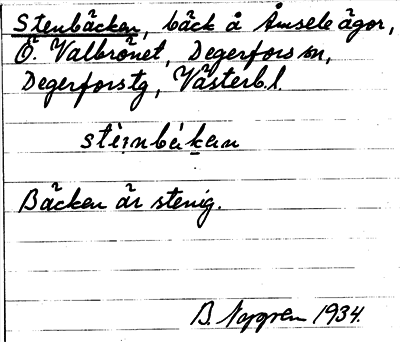 Stenbäcken, bäck å Åmsele ägor,
Ö. Valbrånet, Degerfors sn,
Degerforstg, Västerb.l.
stèi̯nbàkan
Bäcken är stenig.
B. 1934.